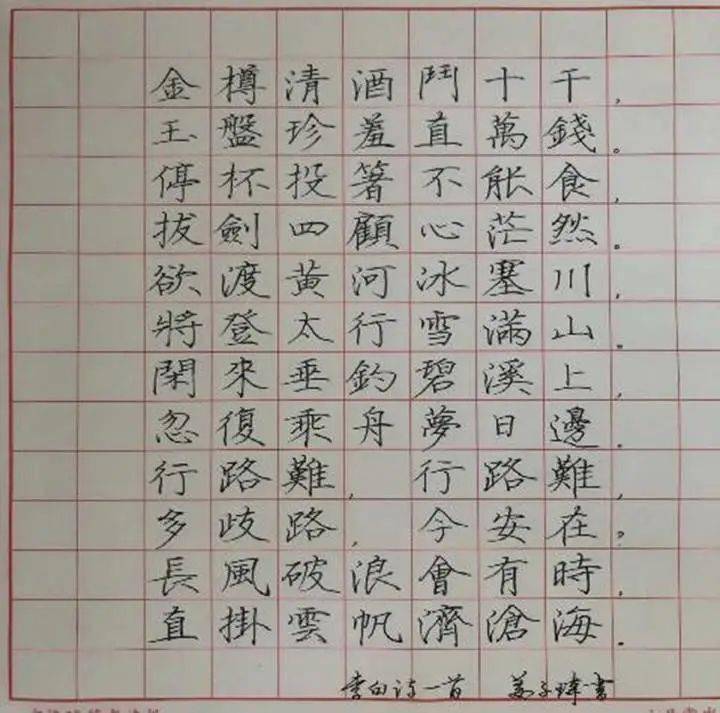 金樽清酒鬥十千，
玉盤珍羞直萬錢。
停杯投箸不能食，
拔劍四顧心茫然。
欲渡黃河冰塞川，
將登太行雪滿山。
閑來垂釣碧溪上，
忽復乘舟夢日邊。
行路難，行路難，
多歧路，今安在。
長風破浪會有時，
直掛雲帆濟滄海。
李白詩一首 書